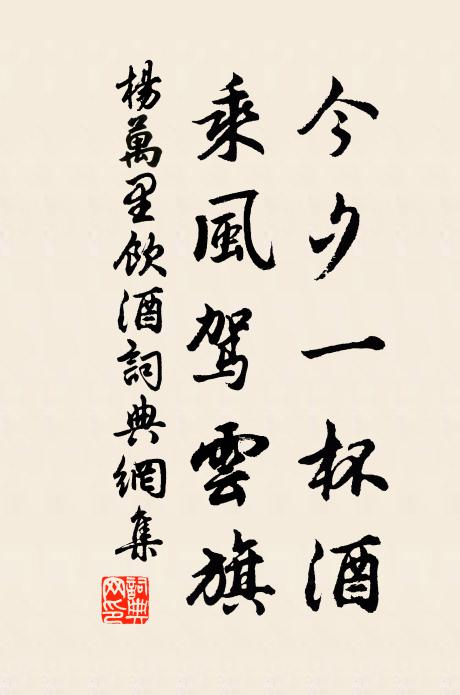 今夕一杯酒
乘風駕雲旗
楊萬里飲酒詞典網集
詞典網印